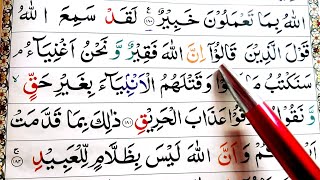 اللّٰهُ بِمَا تَعْمَلُوْنَ خَبِيْرٌ ﴿۱۸۰﴾ لَقَدْ سَمِعَ اللّٰهُ
قَوْلَ الَّذِيْنَ قَالُوْۤا اِنَّ اللّٰهَ فَقِيْرٌ وَّ نَحْنُ اَغْنِيَآءُ ۘ
سَنَكْتُبُ وَقَتْلَهُمُ الْاَنْۢبِيَآءَ بِغَيْرِ حَقٍّ ۙ
وَّ نَقُوْلُ عَذَابَ الْحَرِيْقِ ﴿۱۸۱﴾ ذٰلِكَ بِمَا قَدَّمَتْ
وَ اَنَّ اللّٰهَ لَيْسَ بِظَلَّامٍ لِّلْعَبِيْدِ ﴿۱۸۲﴾